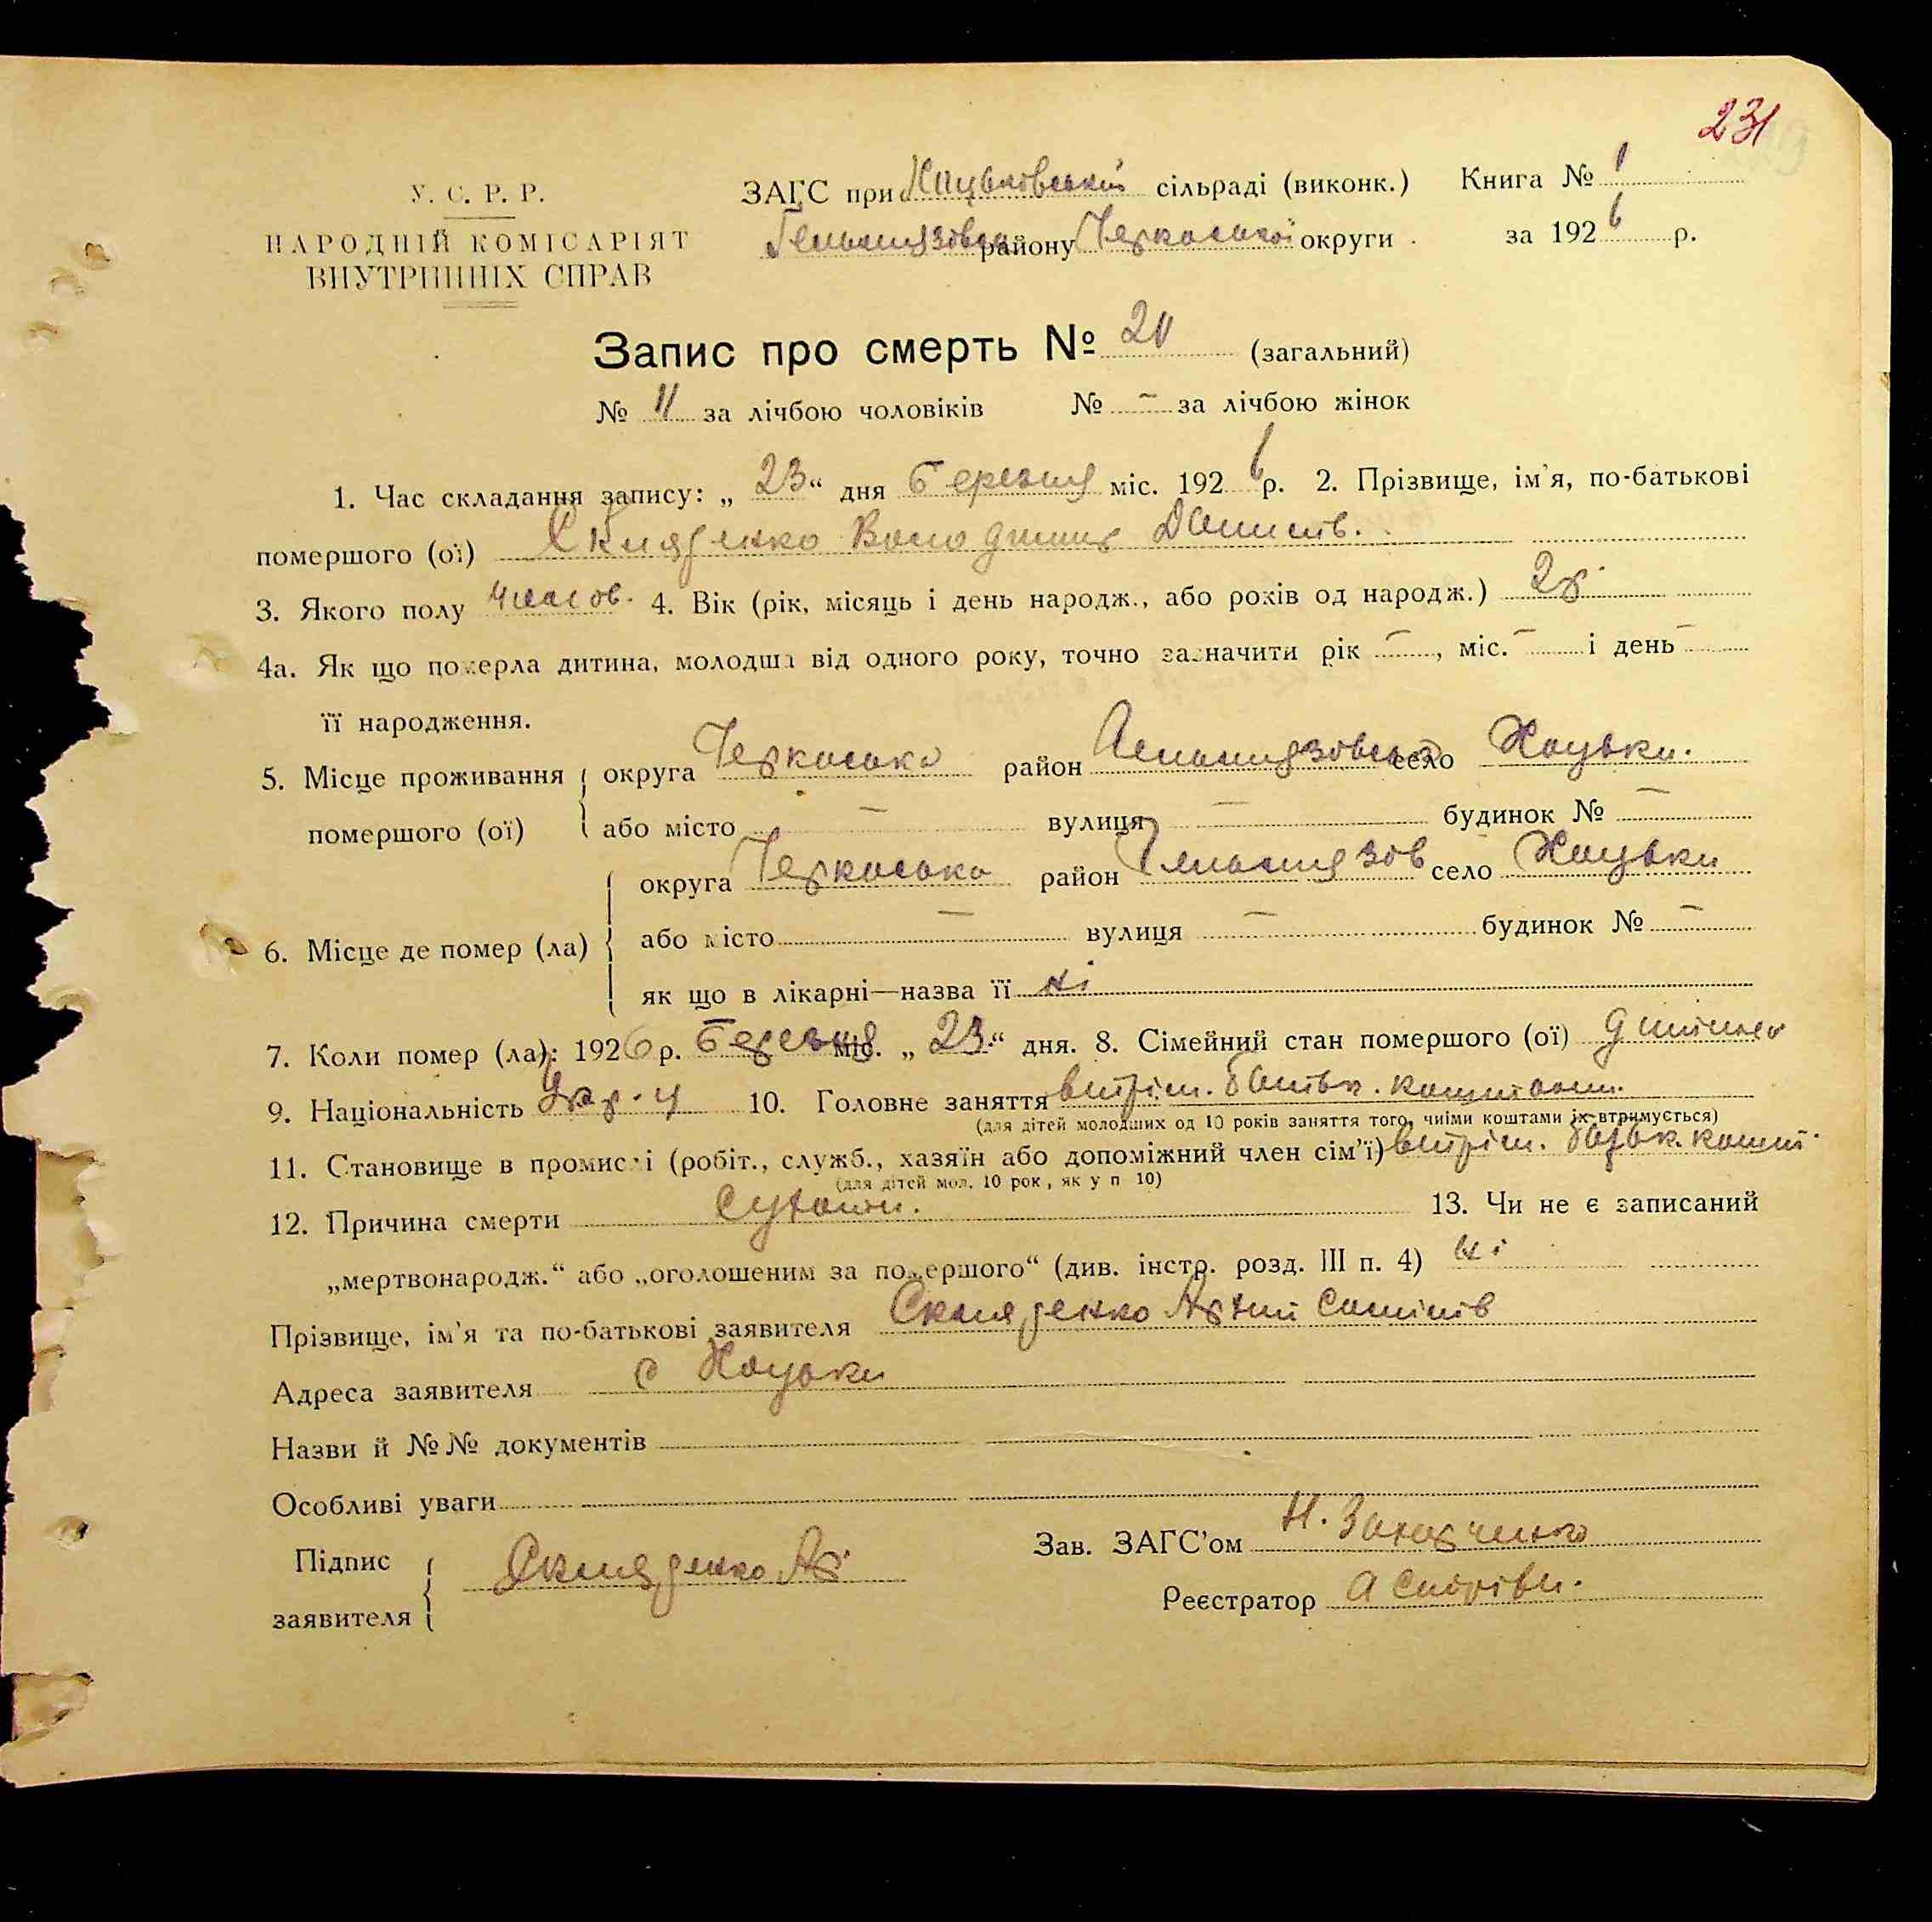 231
У. С. Р. Р.
НАРОДНІЙ КОМІСАРІЯТ
ВНУТРІШНІХ СПРАВ
ЗАГС при Хоцьковській сільраді (виконк.) Книга № 1
Гельмязівськ району Черкаської округи за 1926 р.
Запис про смерть № 20 (загальний)
№ 11 за лічбою чоловіків № – за лічбою жінок
1. Час складання запису: „ 23 “ дня Березня міс. 1926 р. 2. Прізвище, ім'я, по-батькові
помершого (ої) Скляренко Володимир Данилів.
3. Якого полу чолов. 4. Вік (рік, місяць і день народж., або років од народж.) 2 р.
4а. Як що померла дитина, молодша від одного року, точно зазначити рік –, міс. – і день –
її народження.
5. Місце проживання помершого (ої) округа Черкаська район Гельмязовськ село Хоцьки.
або місто – вулиця – будинок № –
6. Місце де помер (ла) округа Черкаська район Гельмязов село Хоцьки
або місто – вулиця – будинок № –
як що в лікарні—назва її ні
7. Коли помер (ла): 1926 р. Березня міс. „ 23 “ дня. 8. Сімейний стан помершого (ої) дитина
9. Національність Укр-ц 10. Головне заняття батьк. коштом.
(для дітей молодших од 10 років заняття того, чиїми коштами їх втримується)
11. Становище в промислі (робіт., служб., хазяїн або допоміжний член сім'ї) батьк. кошт.
(для дітей мол. 10 рок., як у п 10)
12. Причина смерти 13. Чи не є записаний
„мертвонародж.“ або „оголошеним за помершого“ (див. інстр. розд. III п. 4) ні
Прізвище, ім'я та по-батькові заявителя Скляренко
Адреса заявителя с Хоцьки
Назви й №№ документів
Особливі уваги
Підпис заявителя Скляренко
Зав. ЗАГС'ом Н. Захарченко
Реєстратор